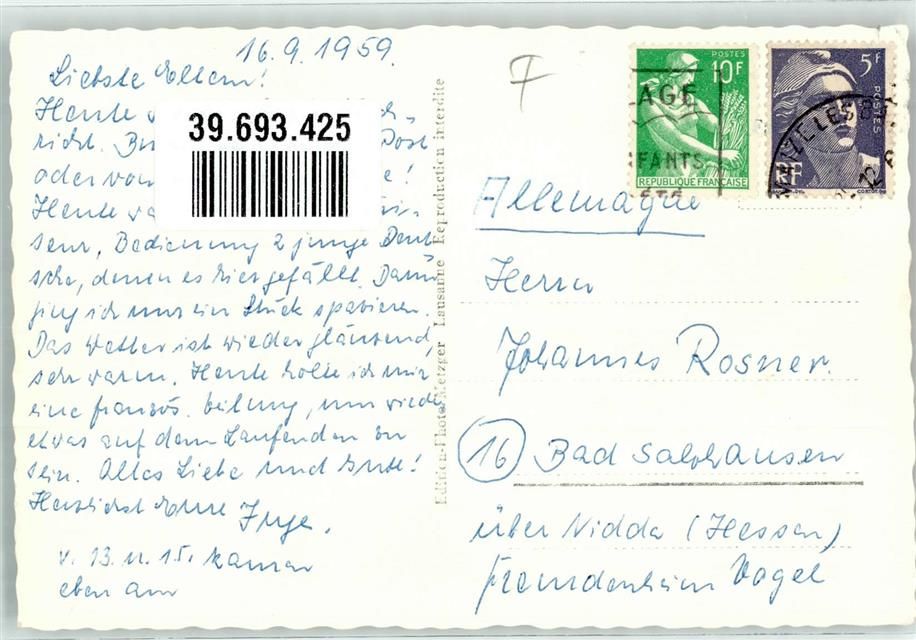 16.9.1959.
Liebste Eltern!
Heute
richt. Post
oder von
Heute
seur, Bedienung 2 junge Deut-
sche, denen es hier gefällt. Dann
ging ich nur ein Stück spazieren.
Das Wetter ist wieder glänzend,
sehr warm. Heute holte ich mir
eine französ. Zeitung, um wieder
etwas auf dem Laufenden zu
sein. Alles Liebe und Gute!
Herzlichst Eure Inge.
v. 13. u. 15. kamen
eben an
39.693.425
Edition-Photo Metzger Lausanne Reproduction interdite
F
POSTES
10F
AGE
FANTS
REPUBLIQUE FRANÇAISE
5F
POSTES
RF
Allemagne
Herrn
Johannes Rosner.
16 Bad Salzhausen
über Nidda (Hessen)
Fremdenheim Vogel